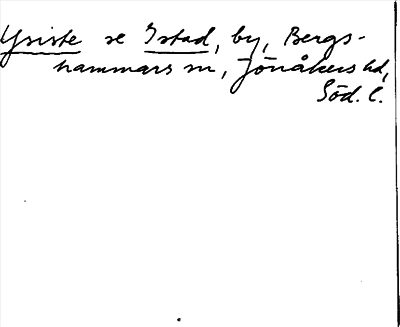 Ysiste se Istad, by, Bergs-
hammars sn, Jönåkers hd,
Söd. l.